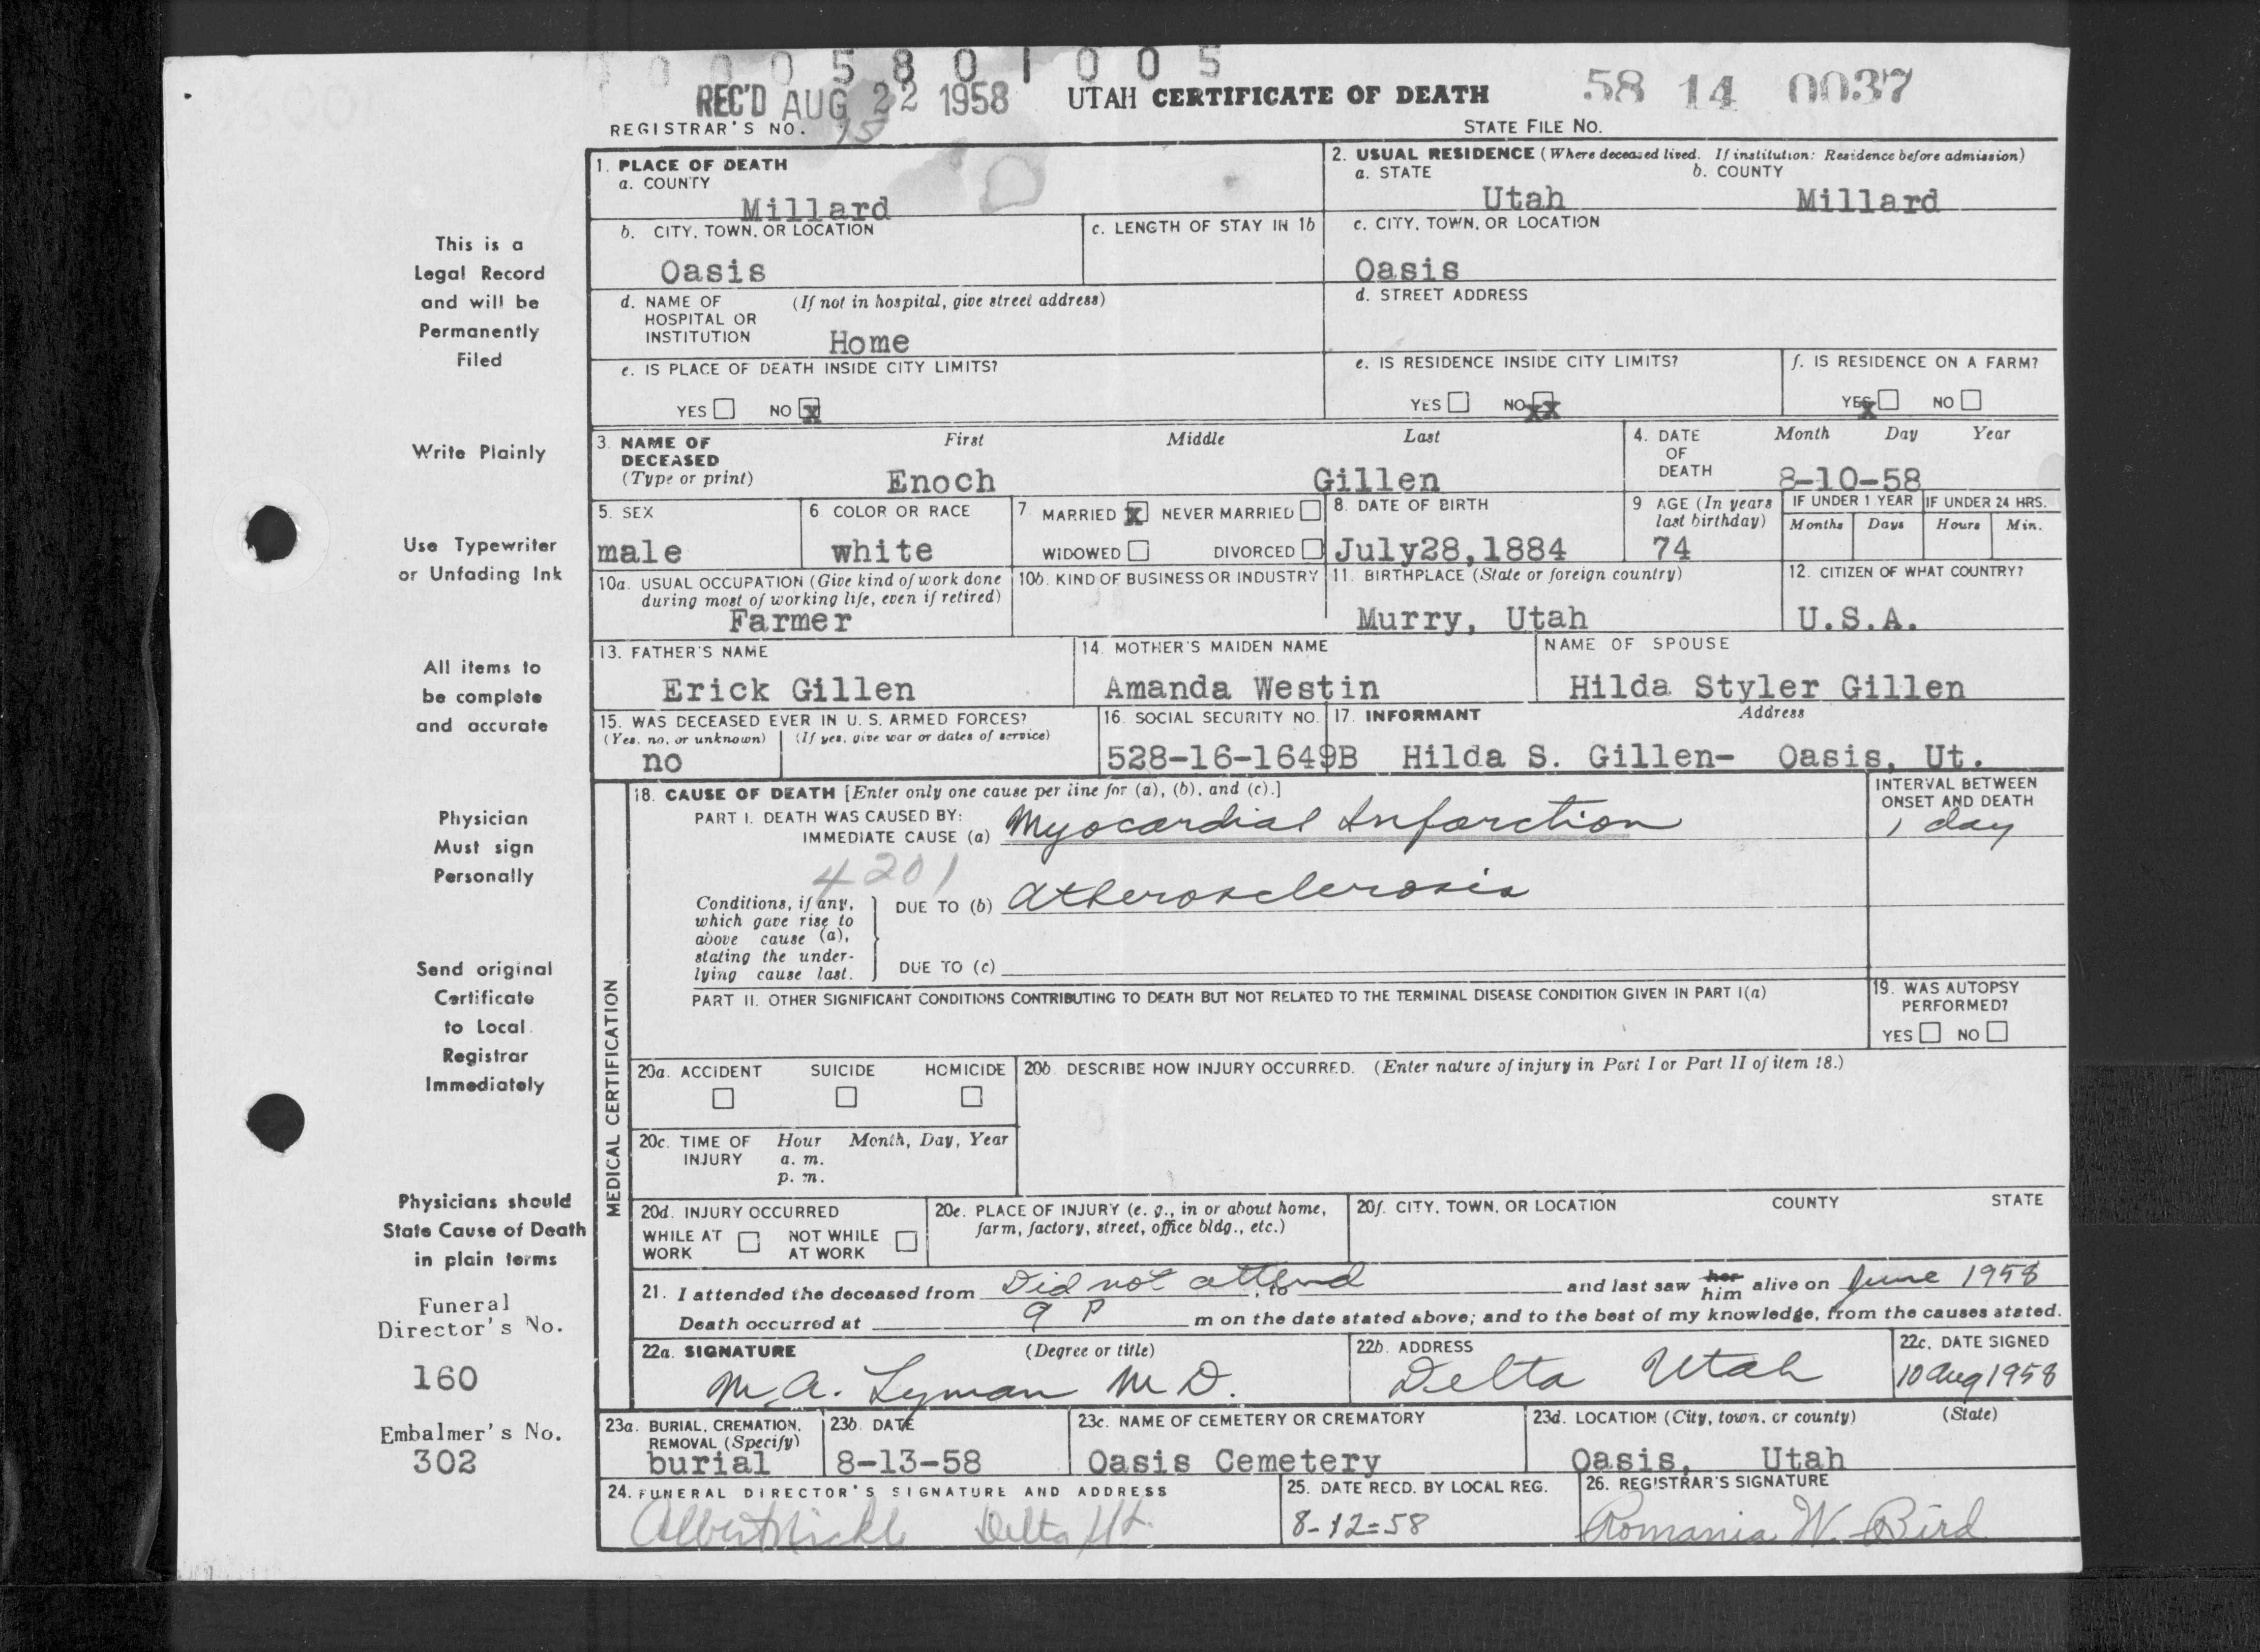 0 0 0 5 8 0 1 0 0 5
REC'D AUG 22 1958 UTAH CERTIFICATE OF DEATH 58 14 0037
REGISTRAR'S NO. 15 STATE FILE NO.
1. PLACE OF DEATH
a. COUNTY
Millard
2. USUAL RESIDENCE (Where deceased lived. If institution: Residence before admission)
a. STATE b. COUNTY
Utah Millard
b. CITY, TOWN, OR LOCATION
Oasis
c. LENGTH OF STAY IN 1b
c. CITY, TOWN, OR LOCATION
Oasis
d. NAME OF (If not in hospital, give street address)
HOSPITAL OR
INSTITUTION Home
d. STREET ADDRESS
e. IS PLACE OF DEATH INSIDE CITY LIMITS?
YES NO X
e. IS RESIDENCE INSIDE CITY LIMITS?
YES NO XX
f. IS RESIDENCE ON A FARM?
YES X NO
3. NAME OF First Middle Last
DECEASED
(Type or print) Enoch Gillen
4. DATE Month Day Year
OF
DEATH 8-10-58
5. SEX
male
6. COLOR OR RACE
white
7. MARRIED X NEVER MARRIED
WIDOWED DIVORCED
8. DATE OF BIRTH
July28,1884
9 AGE (In years
last birthday)
74
IF UNDER 1 YEAR IF UNDER 24 HRS.
Months Days Hours Min.
10a. USUAL OCCUPATION (Give kind of work done
during most of working life, even if retired)
Farmer
10b. KIND OF BUSINESS OR INDUSTRY
11. BIRTHPLACE (State or foreign country)
Murry, Utah
12. CITIZEN OF WHAT COUNTRY?
U.S.A.
13. FATHER'S NAME
Erick Gillen
14. MOTHER'S MAIDEN NAME
Amanda Westin
NAME OF SPOUSE
Hilda Styler Gillen
15. WAS DECEASED EVER IN U. S. ARMED FORCES?
(Yes, no, or unknown) (If yes, give war or dates of service)
no
16. SOCIAL SECURITY NO.
528-16-1649B
17. INFORMANT Address
Hilda S. Gillen- Oasis, Ut.
MEDICAL CERTIFICATION
18. CAUSE OF DEATH [Enter only one cause per line for (a), (b), and (c).]
INTERVAL BETWEEN
ONSET AND DEATH
PART I. DEATH WAS CAUSED BY:
IMMEDIATE CAUSE (a) Myocardial Infarction 1 day
4201
Conditions, if any,
which gave rise to
above cause (a),
stating the under-
lying cause last.
DUE TO (b) Atherosclerosis
DUE TO (c)
PART II. OTHER SIGNIFICANT CONDITIONS CONTRIBUTING TO DEATH BUT NOT RELATED TO THE TERMINAL DISEASE CONDITION GIVEN IN PART I(a)
19. WAS AUTOPSY
PERFORMED?
YES NO
20a. ACCIDENT SUICIDE HOMICIDE
20b. DESCRIBE HOW INJURY OCCURRED. (Enter nature of injury in Part I or Part II of item 18.)
20c. TIME OF Hour Month, Day, Year
INJURY a. m.
p. m.
20d. INJURY OCCURRED
WHILE AT NOT WHILE
WORK AT WORK
20e. PLACE OF INJURY (e. g., in or about home,
farm, factory, street, office bldg., etc.)
20f. CITY, TOWN, OR LOCATION COUNTY STATE
21. I attended the deceased from Did not attend , to and last saw her him alive on June 1958
Death occurred at 9 P m on the date stated above; and to the best of my knowledge, from the causes stated.
22a. SIGNATURE (Degree or title)
M. A. Lyman M D.
22b. ADDRESS
Delta Utah
22c. DATE SIGNED
10 Aug 1958
23a. BURIAL, CREMATION,
REMOVAL (Specify)
burial
23b. DATE
8-13-58
23c. NAME OF CEMETERY OR CREMATORY
Oasis Cemetery
23d. LOCATION (City, town, or county) (State)
Oasis, Utah
24. FUNERAL DIRECTOR'S SIGNATURE AND ADDRESS
Albert Nickle Delta Ut.
25. DATE RECD. BY LOCAL REG.
8-12=58
26. REGISTRAR'S SIGNATURE
Romania W. Bird
This is a
Legal Record
and will be
Permanently
Filed
Write Plainly
Use Typewriter
or Unfading Ink
All items to
be complete
and accurate
Physician
Must sign
Personally
Send original
Certificate
to Local
Registrar
Immediately
Physicians should
State Cause of Death
in plain terms
Funeral
Director's No.
160
Embalmer's No.
302